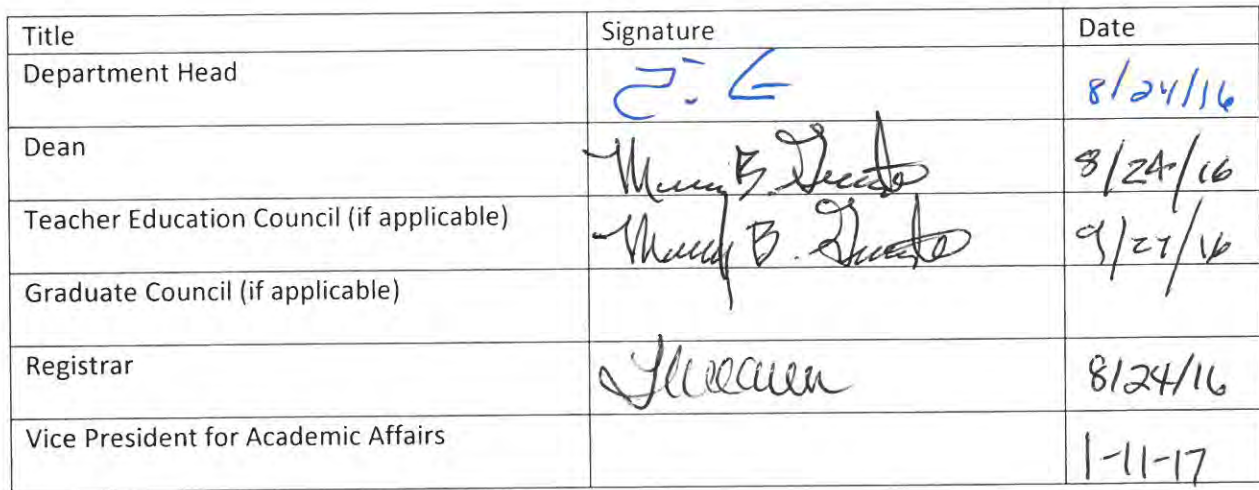 Title Signature Date
Department Head 8/24/16
Dean B. 8/24/16
Teacher Education Council (if applicable) B. 9/27/16
Graduate Council (if applicable)
Registrar 8/24/16
Vice President for Academic Affairs 1-11-17